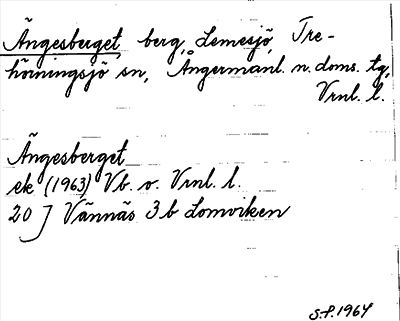 Ängesberget, berg, Lemesjö, Tre-
hörningsjö sn, Ångermanl. n. doms. tg,
Vrnl. l.
Ängesberget
ek (1963) Vb. o. Vrnl. l.
20 J Vännäs 3b Lomviken
S.P. 1964